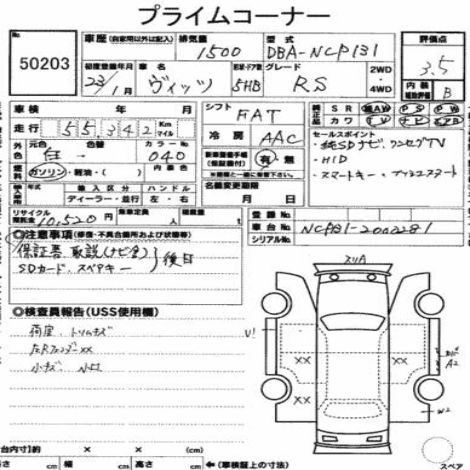 プライムコーナー
50203
車歴(自家用以外は記入) 排気量 1500 型式 DBA-NCP131 評価点 3.5
初度登録年月 23/1 車名 ヴィッツ 5HB グレード RS 2WD 4WD 内装 B
車検 年 月 シフト FAT 純正品 SR AW PS PW
走行 55,342 Km マイル 冷房 AAC カワ TV ナビ エアB
外色 元色 白 色替 カラーNo 040 内装色
セールスポイント
・純SDナビ、ワンセグTV
・HID
・スマートキー・
燃料 ガソリン・軽油・( ) 有 無
輸入車 年式 輸入区分 ディーラー・並行 ハンドル 左・右 名義変更期限 月 日
リサイクル預託金 10,520円 乗車定員 人 積載量 登録No
車台No NCP131-2002281
シリアルNo
◎注意事項(修復・不具合箇所および状態等)
保証書、取説(ナビ含)
SDカード、スペアキー 後日
◎検査員報告(USS使用欄)
荷室、トリムキズ
左Rフェンダーxx
小キズ 小凹
スリA
U1
XX XX
XX
A2
W2
スペア
荷台内寸)約 × × (cm)
長さ cm 幅 cm 高さ cm ←(車検証上の寸法)